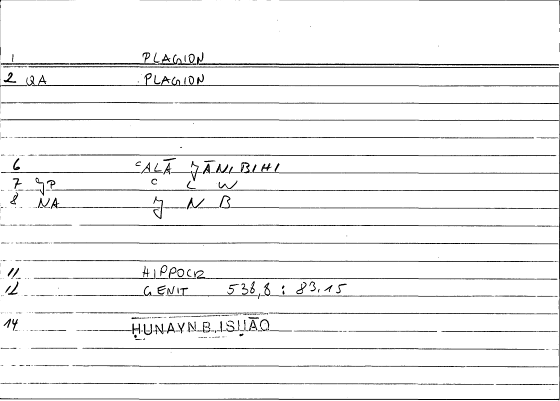 1 PLAGION
2 QA PLAGION
6 ʿALĀ ǦĀNIBIHI
7 ǦP ʿ L W
8 NA Ǧ N B
11 HIPPOCR
12 GENIT 538,8 : 83.15
14 ḤUNAYN B. ISḤĀQ